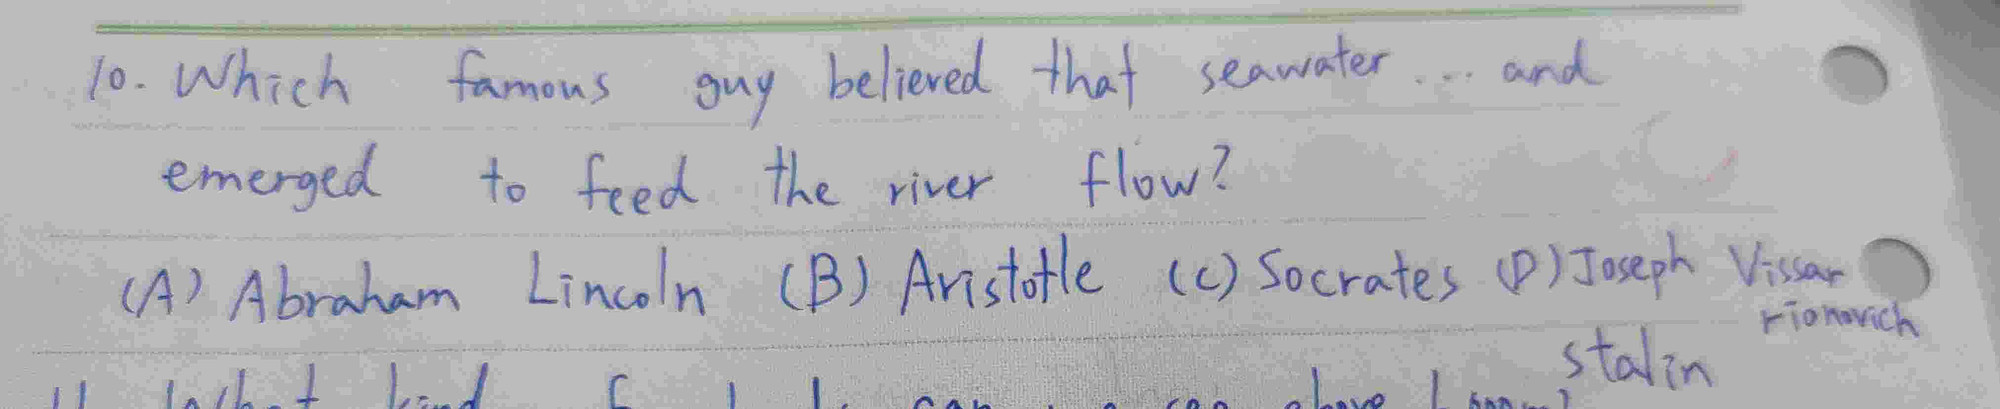 10. Which famous guy believed that seawater ... and
emerged to feed the river flow?
(A) Abraham Lincoln (B) Aristotle (C) Socrates (D) Joseph Vissar
rionovich
stalin
11. What kind